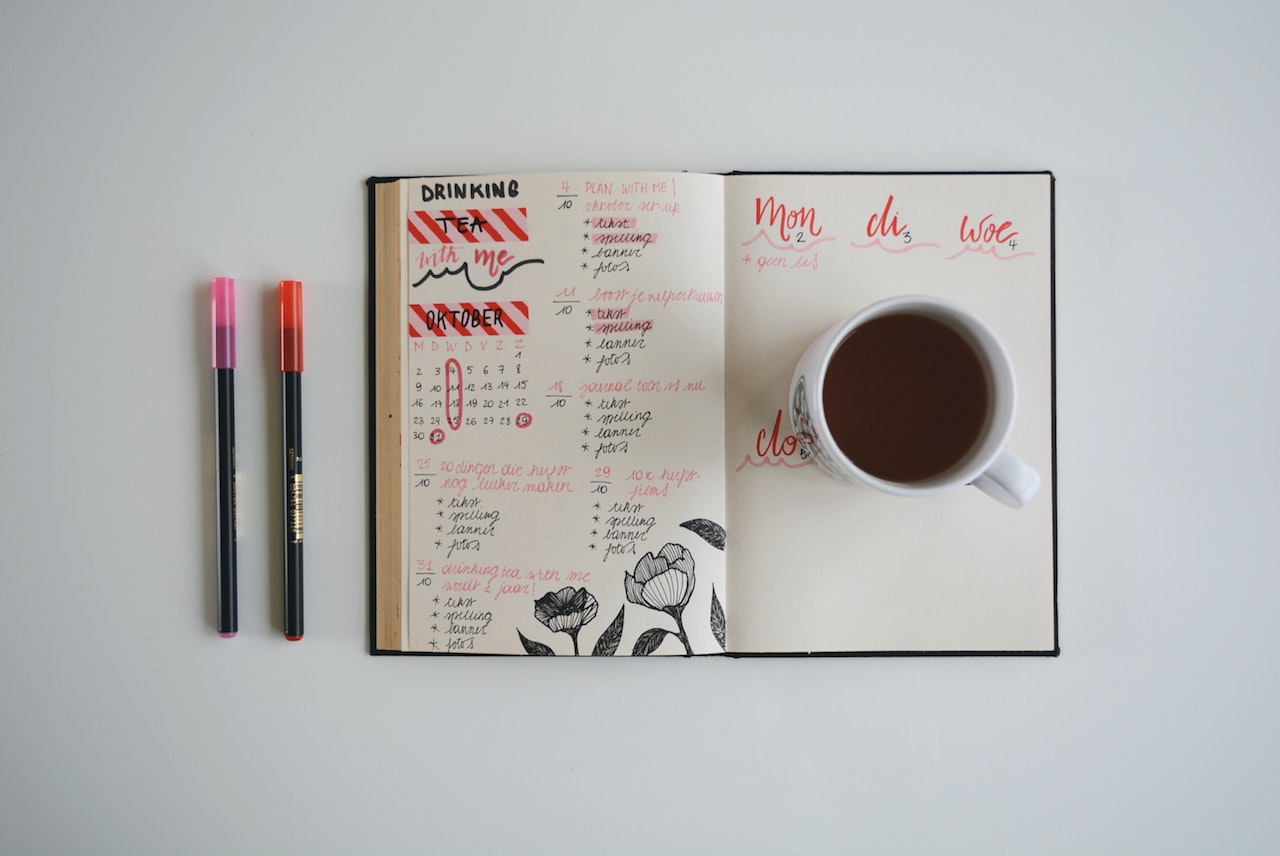 DRINKING
TEA
with me
OKTOBER
M D W D V Z Z
1
2 3 4 5 6 7 8
9 10 11 12 13 14 15
16 17 18 19 20 21 22
23 24 25 26 27 28 29
30 31
4/10 PLAN WITH ME!
oktober set-up
* tekst
* spelling
* banner
* foto's
11/10 boost je zelfvertrouwen
* tekst
* spelling
* banner
* foto's
18/10 journal
* tekst
* spelling
* banner
* foto's
25/10 20 dingen die herfst
nog leuker maken
* tekst
* spelling
* banner
* foto's
29/10 10x herfst-
films
* tekst
* spelling
* banner
* foto's
31/10 drinking tea with me
wordt 1 jaar!
* tekst
* spelling
* banner
* foto's
Mon 2 di 3 woe 4
* geen les
do 5